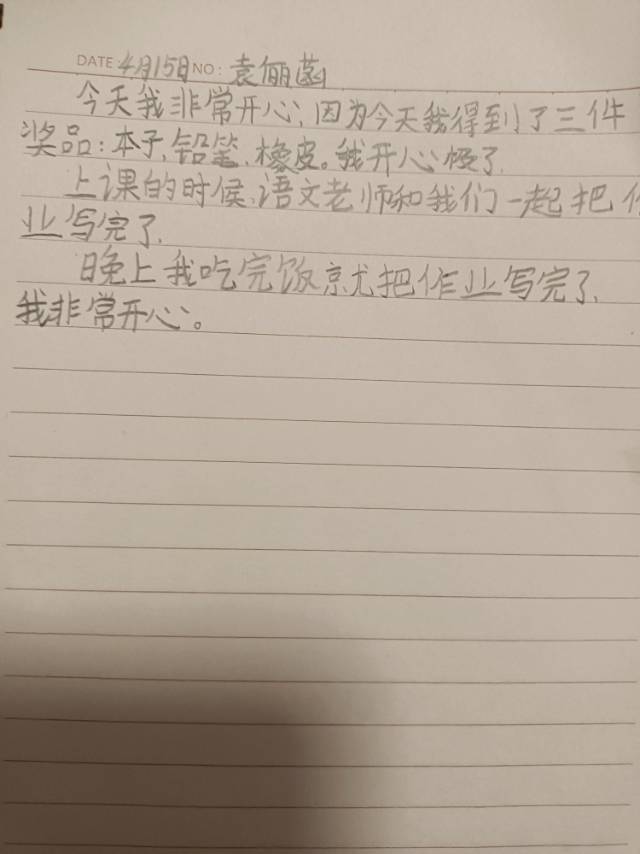 DATE 4月15日 NO: 袁俪菡
今天我非常开心,因为今天我得到了三件
奖品:本子,铅笔,橡皮。我开心极了.
上课的时候,语文老师和我们一起把作
业写完了.
晚上我吃完饭就把作业写完了.
我非常开心。